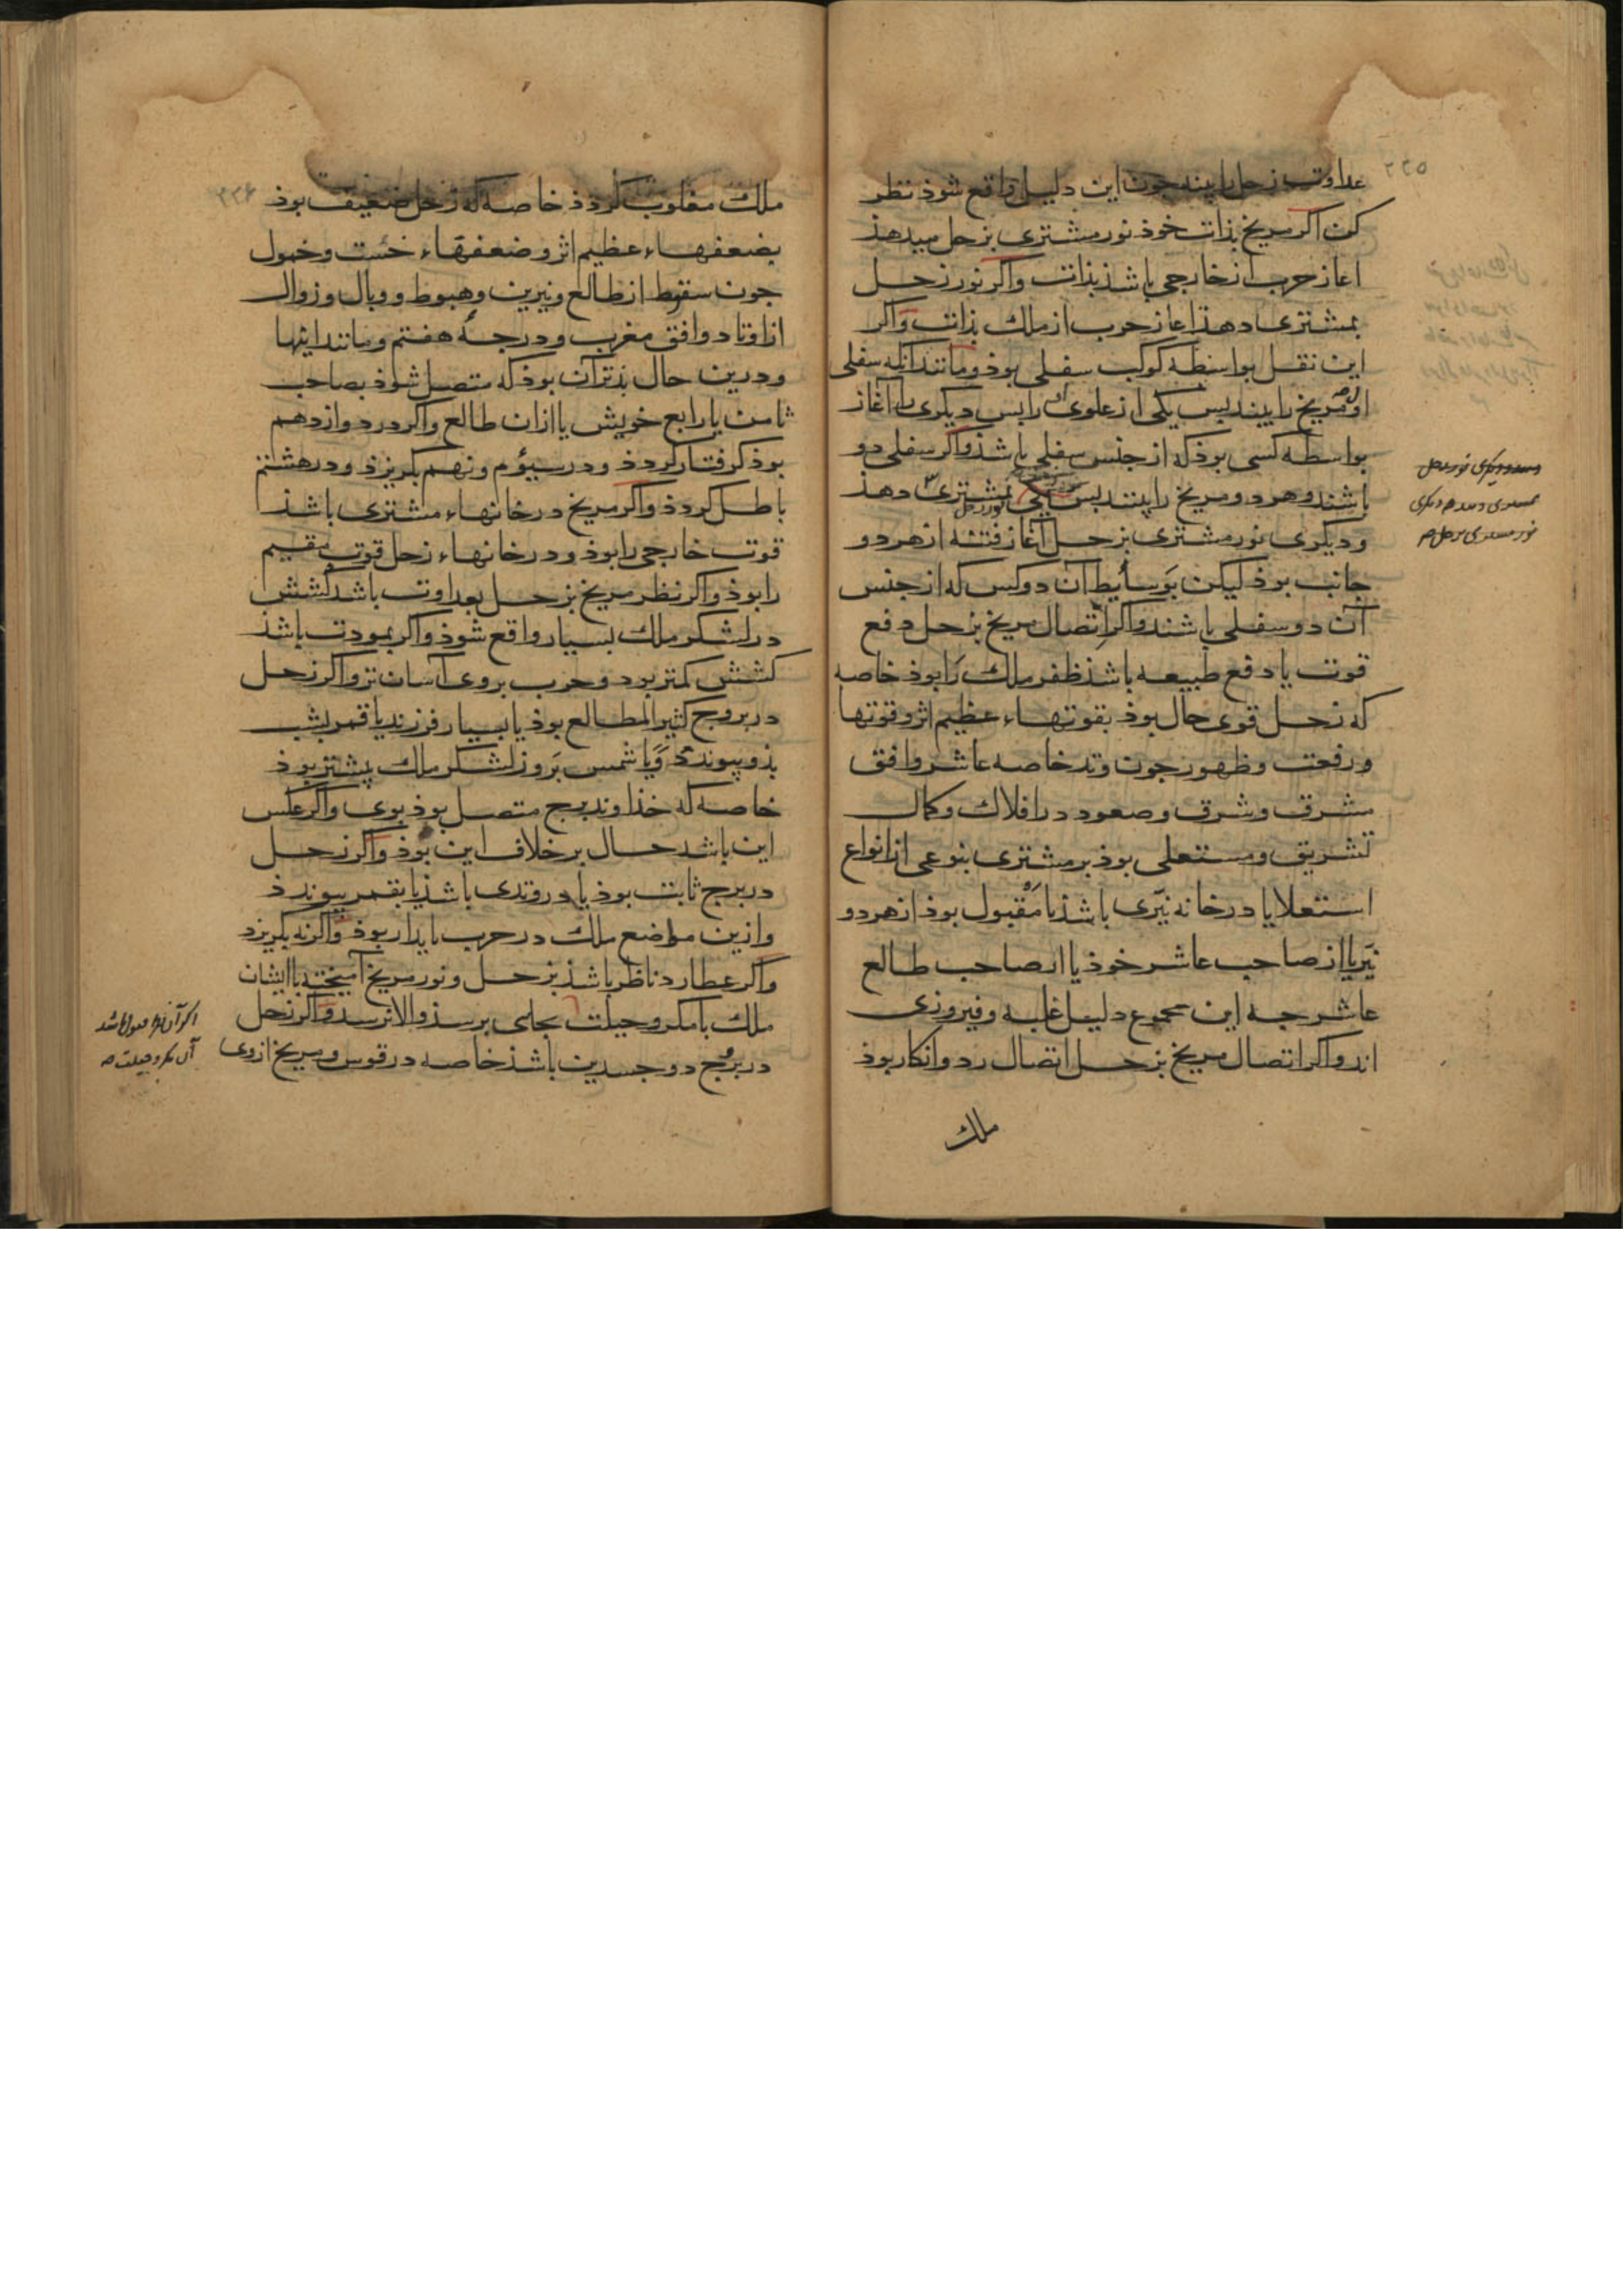 ۲۲۵
عداوت زحل را بیند جون این دلیل واقع شوذ نظر
کن اکر مریخ بذات خوذ نور مشتری بزحل میدهذ
اغاز حرب از خارجی باشذ بذات واکر نور زحل
بمشتری دهذ اغاز حرب از ملک بذات واکر
این نقل بواسطه کوکب سفلی بوذ ومانند انکه سفلی
مریخ را بیند بس یکی از علوی را بس دیکری را اغاز
بواسطه کسی بوذ که از جنس سفلی باشذ واکر سفلی دو
باشند وهر دو مریخ را بینند بس یکی بمشتری دهذ
ودیکری نور مشتری بزحل آغاز فتنه از هر دو
جانب بوذ لیکن بوسایط آن دو کس که از جنس
آن دو سفلی باشند واکر اتصال مریخ بزحل دفع
قوت یا دفع طبیعه باشذ ظفر ملک را بوذ خاصه
که زحل قوی حال بوذ بقوتهاء عظیم اثر وقوتها
ورفعت وظهور جون وتد خاصه عاشر وافق
مشرق وشرف وصعود در افلاک وکمال
تشریق ومستعلی بوذ بر مشتری بنوعی از انواع
استعلا یا در خانه نیری باشذ یا مقبول بوذ از هر دو
نیر یا از صاحب عاشر خوذ یا از صاحب طالع
عاشر جه این مجموع دلیل غلبه وفیروزی
اند واکر اتصال مریخ بزحل اتصال رد وانکار بوذ
ملک
۲۲۶
ملک مغلوب کردذ خاصه که زحل ضعیف بوذ
بضعفهاء عظیم اثر وضعفهاء خست وخمول
جون سقوط از طالع ونیرین وهبوط ووبال وزوال
از اوتاد وافق مغرب ودرجهٔ هفتم ومانند اینها
ودرین حال بذتر آن بوذ که متصل شوذ بصاحب
ثامن یا رابع خویش یا ازان طالع واکر در دوازدهم
بوذ کرفتار کردذ ودر سیؤم ونهم بکریزذ ودر هشتم
باطل کردذ واکر مریخ در خانهاء مشتری باشذ
قوت خارجی را بوذ ودر خانهاء زحل قوت مقیم
را بوذ واکر نظر مریخ بزحل بعداوت باشد کشش
در لشکر ملک بسیار واقع شوذ واکر بمودت باشذ
کشش کمتر بود وحرب بروی آسان تر واکر زحل
در بروج کثیر المطالع بوذ یا بسیار فرزند یا قمر بشب
بذو پیوندد ویا شمس بروز لشکر ملک بیشتر بوذ
خاصه که خذاوند برج متصل بوذ بوی واکر عکس
این باشد حال بر خلاف این بوذ واکر زحل
در برج ثابت بوذ یا در وتدی باشذ یا بقمر پیوندذ
وازین مواضع ملک در حرب بایدار بوذ واکر نه بکریزد
واکر عطارد ناظر باشذ بزحل ونور مریخ آمیخته باایشان
ملک بامکر وحیلت بجایی برسذ والا نرسد واکر زحل
در بروج دو جسدین باشذ خاصه در قوس ومریخ از وی